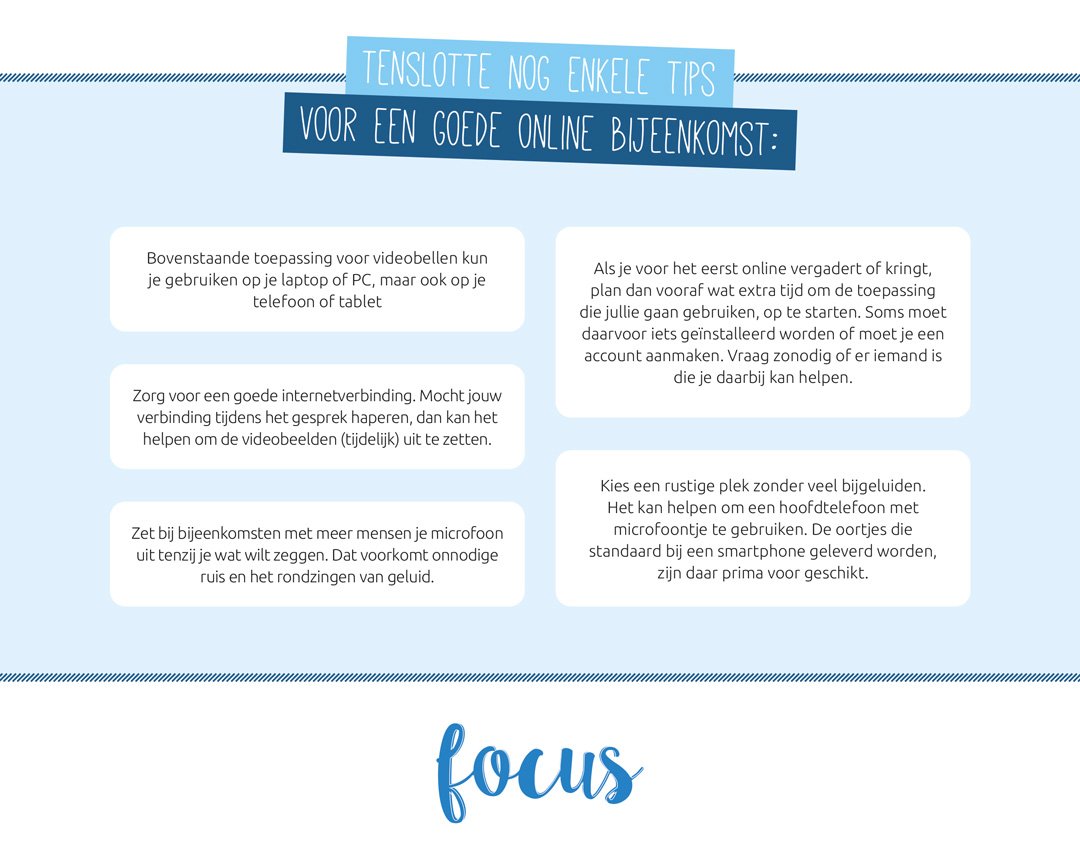 TENSLOTTE NOG ENKELE TIPS
VOOR EEN GOEDE ONLINE BIJEENKOMST:
Bovenstaande toepassing voor videobellen kun
je gebruiken op je laptop of PC, maar ook op je
telefoon of tablet
Zorg voor een goede internetverbinding. Mocht jouw
verbinding tijdens het gesprek haperen, dan kan het
helpen om de videobeelden (tijdelijk) uit te zetten.
Zet bij bijeenkomsten met meer mensen je microfoon
uit tenzij je wat wilt zeggen. Dat voorkomt onnodige
ruis en het rondzingen van geluid.
Als je voor het eerst online vergadert of kringt,
plan dan vooraf wat extra tijd om de toepassing
die jullie gaan gebruiken, op te starten. Soms moet
daarvoor iets geïnstalleerd worden of moet je een
account aanmaken. Vraag zonodig of er iemand is
die je daarbij kan helpen.
Kies een rustige plek zonder veel bijgeluiden.
Het kan helpen om een hoofdtelefoon met
microfoontje te gebruiken. De oortjes die
standaard bij een smartphone geleverd worden,
zijn daar prima voor geschikt.
focus